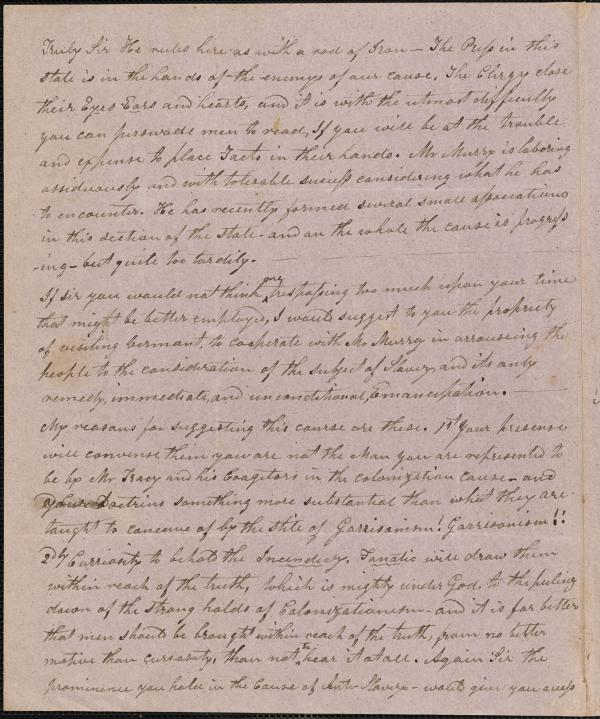 Truly Sir He rules here as with a rod of Iron — The Press in this
state is in the hands of the enemys of our cause. The Clergy close
their Eyes Ears and hearts, and it is with the utmost difficulty
you can perswade men to read, If you will be at the trouble
and expense to place Facts in their hands. Mr Murry is laboring
assiduously and with tolerable success considering what he has
to encounter. He has recently formed several small associations
in this section of the state - and on the whole the cause is progress
-ing - but quite too tardily.
If sir you would not think me trespassing too much upon your time
that might be better employed, I would suggest to you the propriety
of visiting vermont to cooperate with Mr Murry in arrouseing the
people to the consideration of the subject of Slavery, and its only
remedy, immediate, and unconditional, Emancipation.
My reasons for suggesting this course are these. 1st Your presense
will convense them you are not the Man you are represented to
be by Mr Tracy and his Coagitors in the colonization cause - and
your Doctrins something more substantial than what they are
taught to conceive of by the stile of Garrisonism! Garrisonism!!
2dly Curriosity to behold the Incendiary, Fanatic will draw them
within reach of the truth, which is mighty under God, to the puling
down of the strong holds of Colonizationism - and it is far better
that men should be brought within reach of the truth, from no better
motive than curiosity, than not to hear it at all. Again Sir the
prominence you hold in the Cause of Anti-Slavery - would give you access